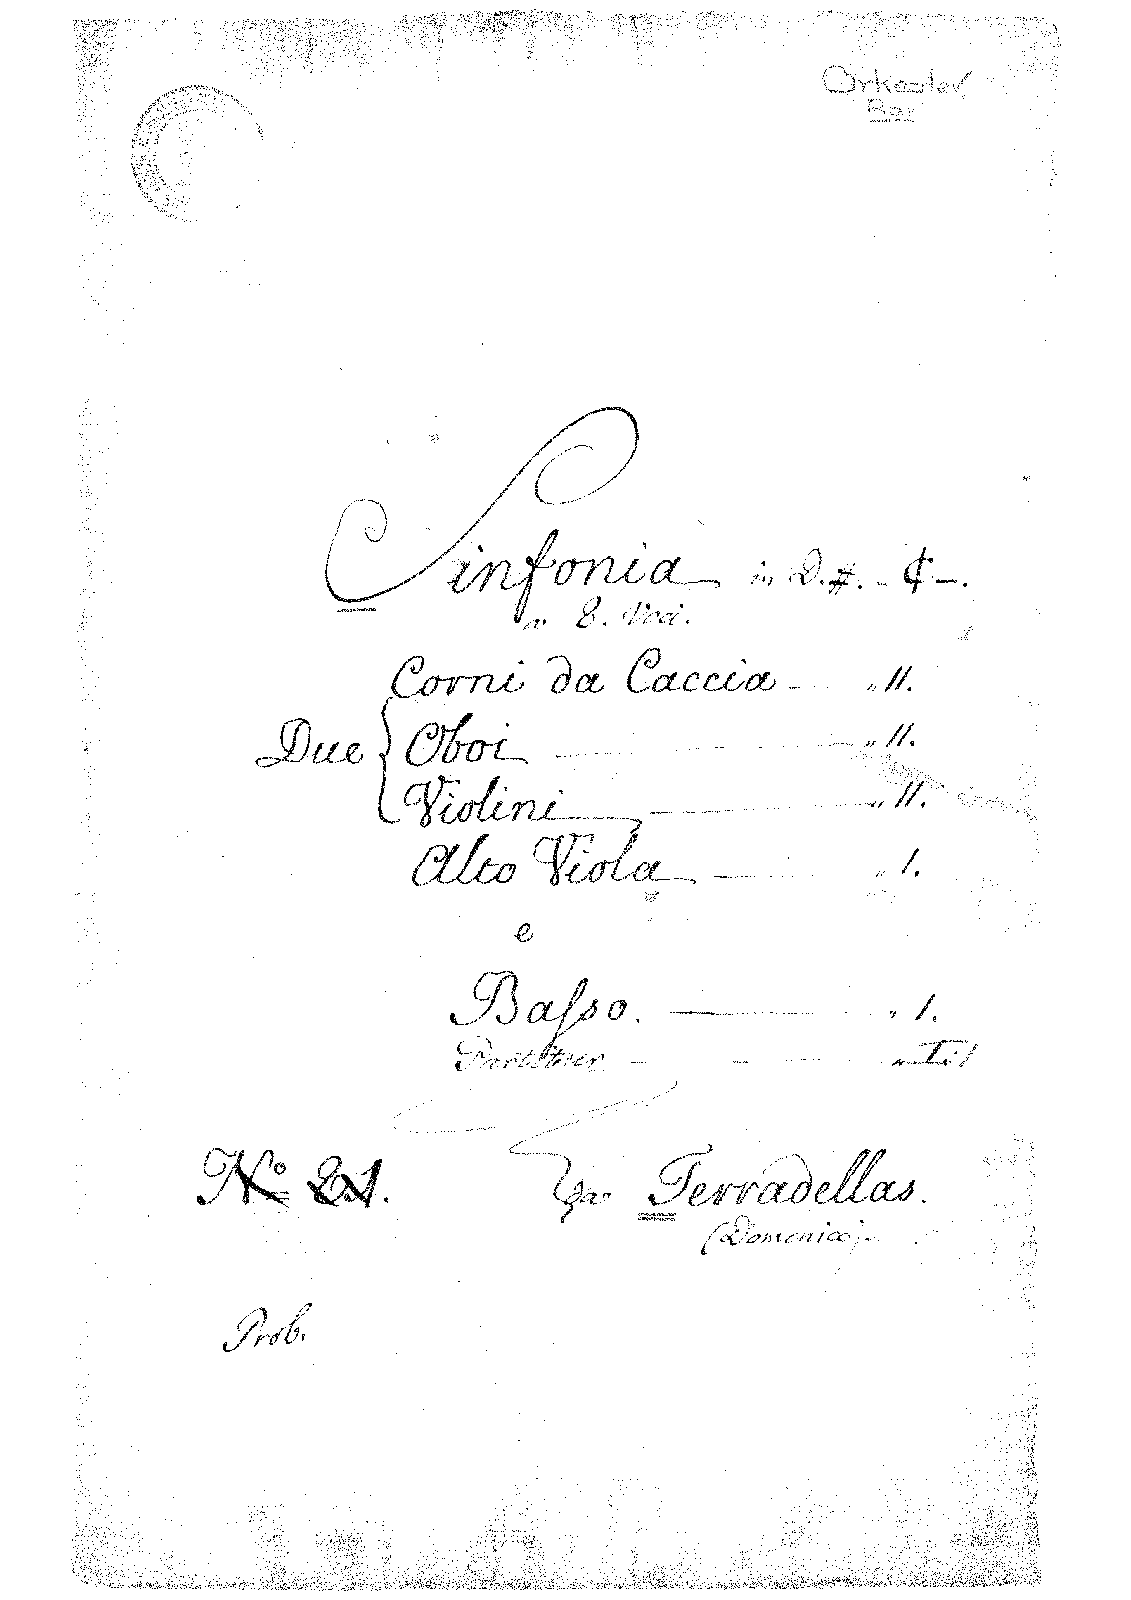 Orkester
Rar
Sinfonia in D.#. - ¢ -.
a 8. Voci.
Corni da Caccia - „ II.
Due { Oboi - „ II.
Violini - „ II.
Alto Viola - „ 1.
e
Baſso. - „ 1.
Partitur - - - „
No 21. Da Terradellas.
(Domenico).
Prob.